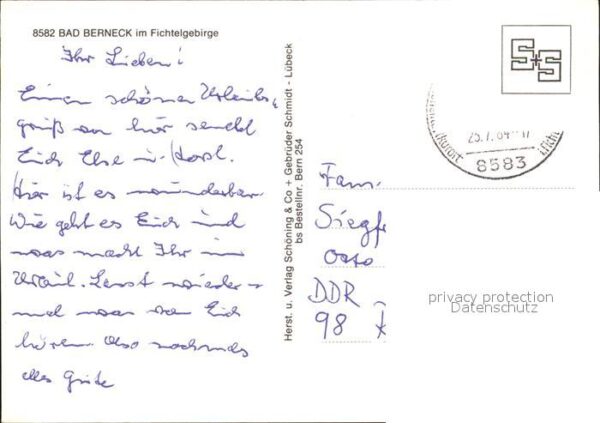 8582 BAD BERNECK im Fichtelgebirge
Ihr Lieben!
Einen schönen Urlaubs-
gruß von hier sendet
Euch Else u. Horst.
Hier ist es wunderbar.
Wie geht es Euch und
was macht Ihr im
Urlaub. Lasst wieder-
mal was von Euch
hören. Also nochmals
alles Gute
Herst. u. Verlag Schöning & Co + Gebrüder Schmidt - Lübeck
bs Bestellnr. Bern 254
S+S
25.7.84
kurort
8583
Fam.
Siegfr
Otto
DDR
98
privacy protection
Datenschutz